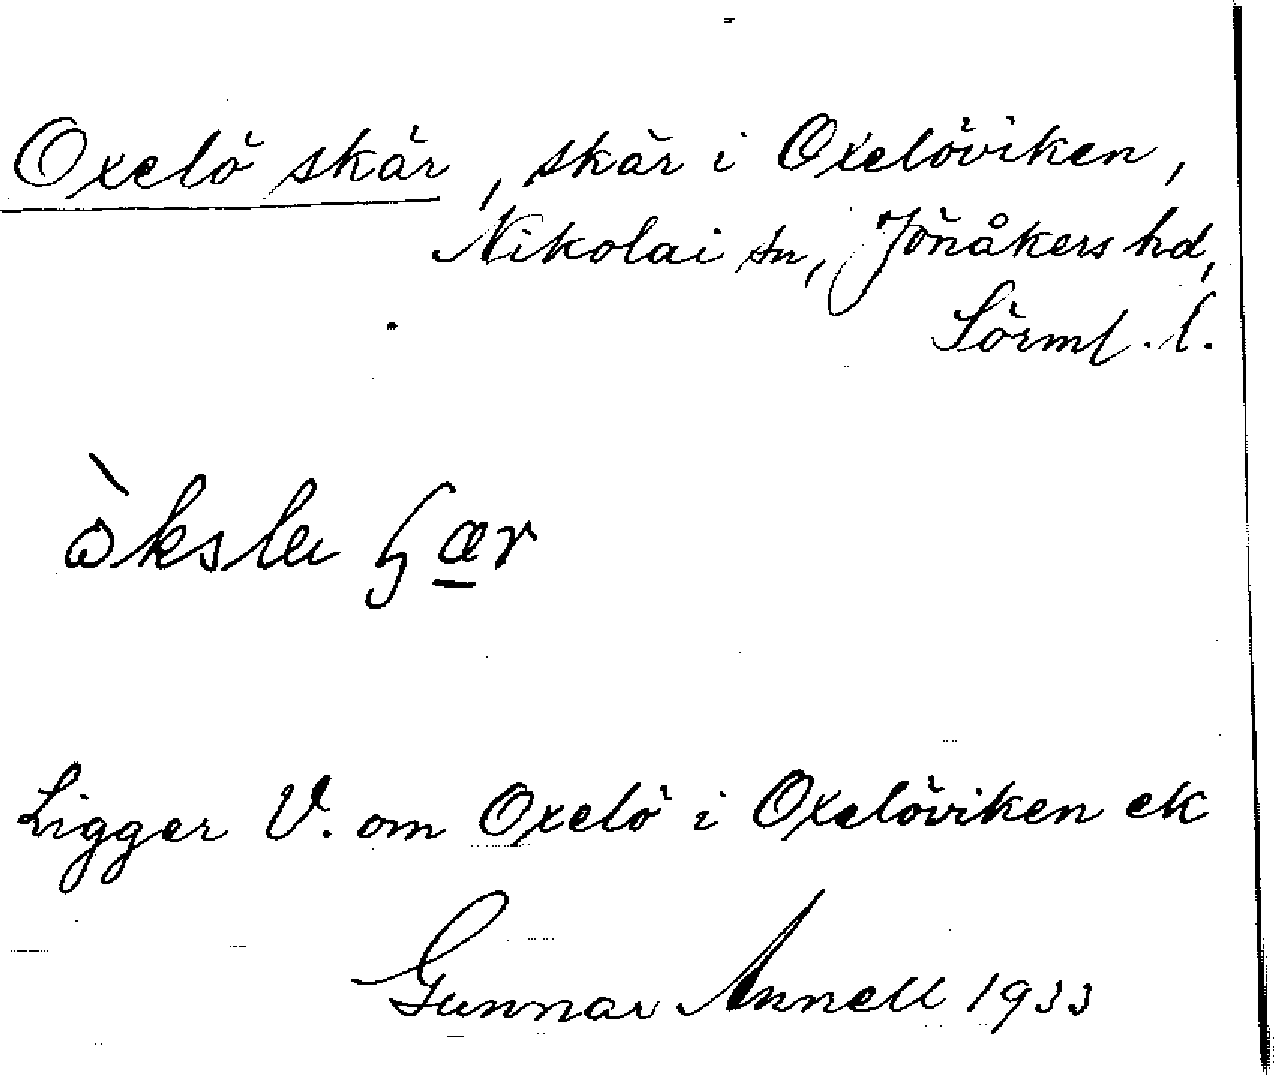 Oxelö skär, skär i Oxelöviken,
Nikolai sn, Jönåkers hd,
Sörml. l.
Ligger V. om Oxelö i Oxelöviken ek
Gunnar Annell 1933